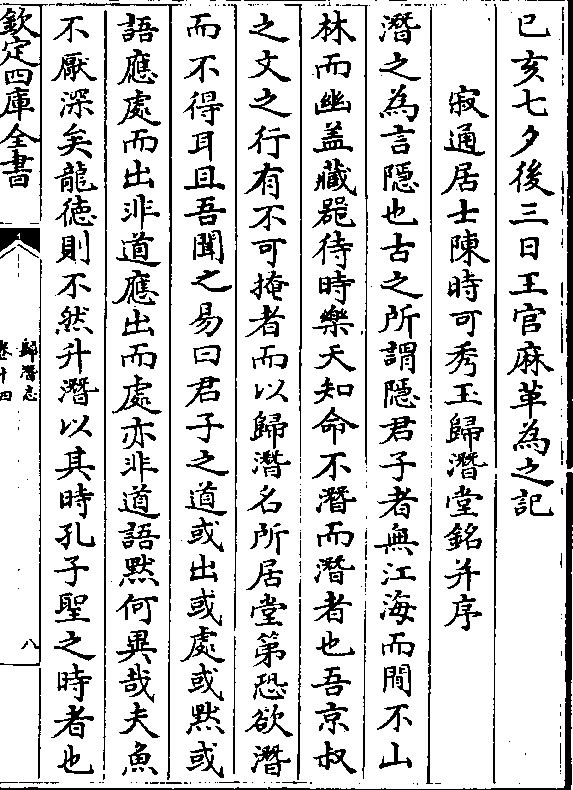 已亥七夕後三日王官麻革為之記
寂通居士陳時可秀玉歸潛堂銘并序
潛之為言隱也古之所謂隱君子者無江海而閒不山
林而幽盖藏器待時樂天知命不潛而潛者也吾京叔
之文之行有不可掩者而以歸潛名所居堂第恐欲潛
而不得耳且吾聞之易曰君子之道或出或處或默或
語應處而出非道應出而處亦非道語默何異哉夫魚
不厭深矣龍徳則不然升潛以其時孔子聖之時者也
欽定四庫全書
歸潛志
卷十四
八